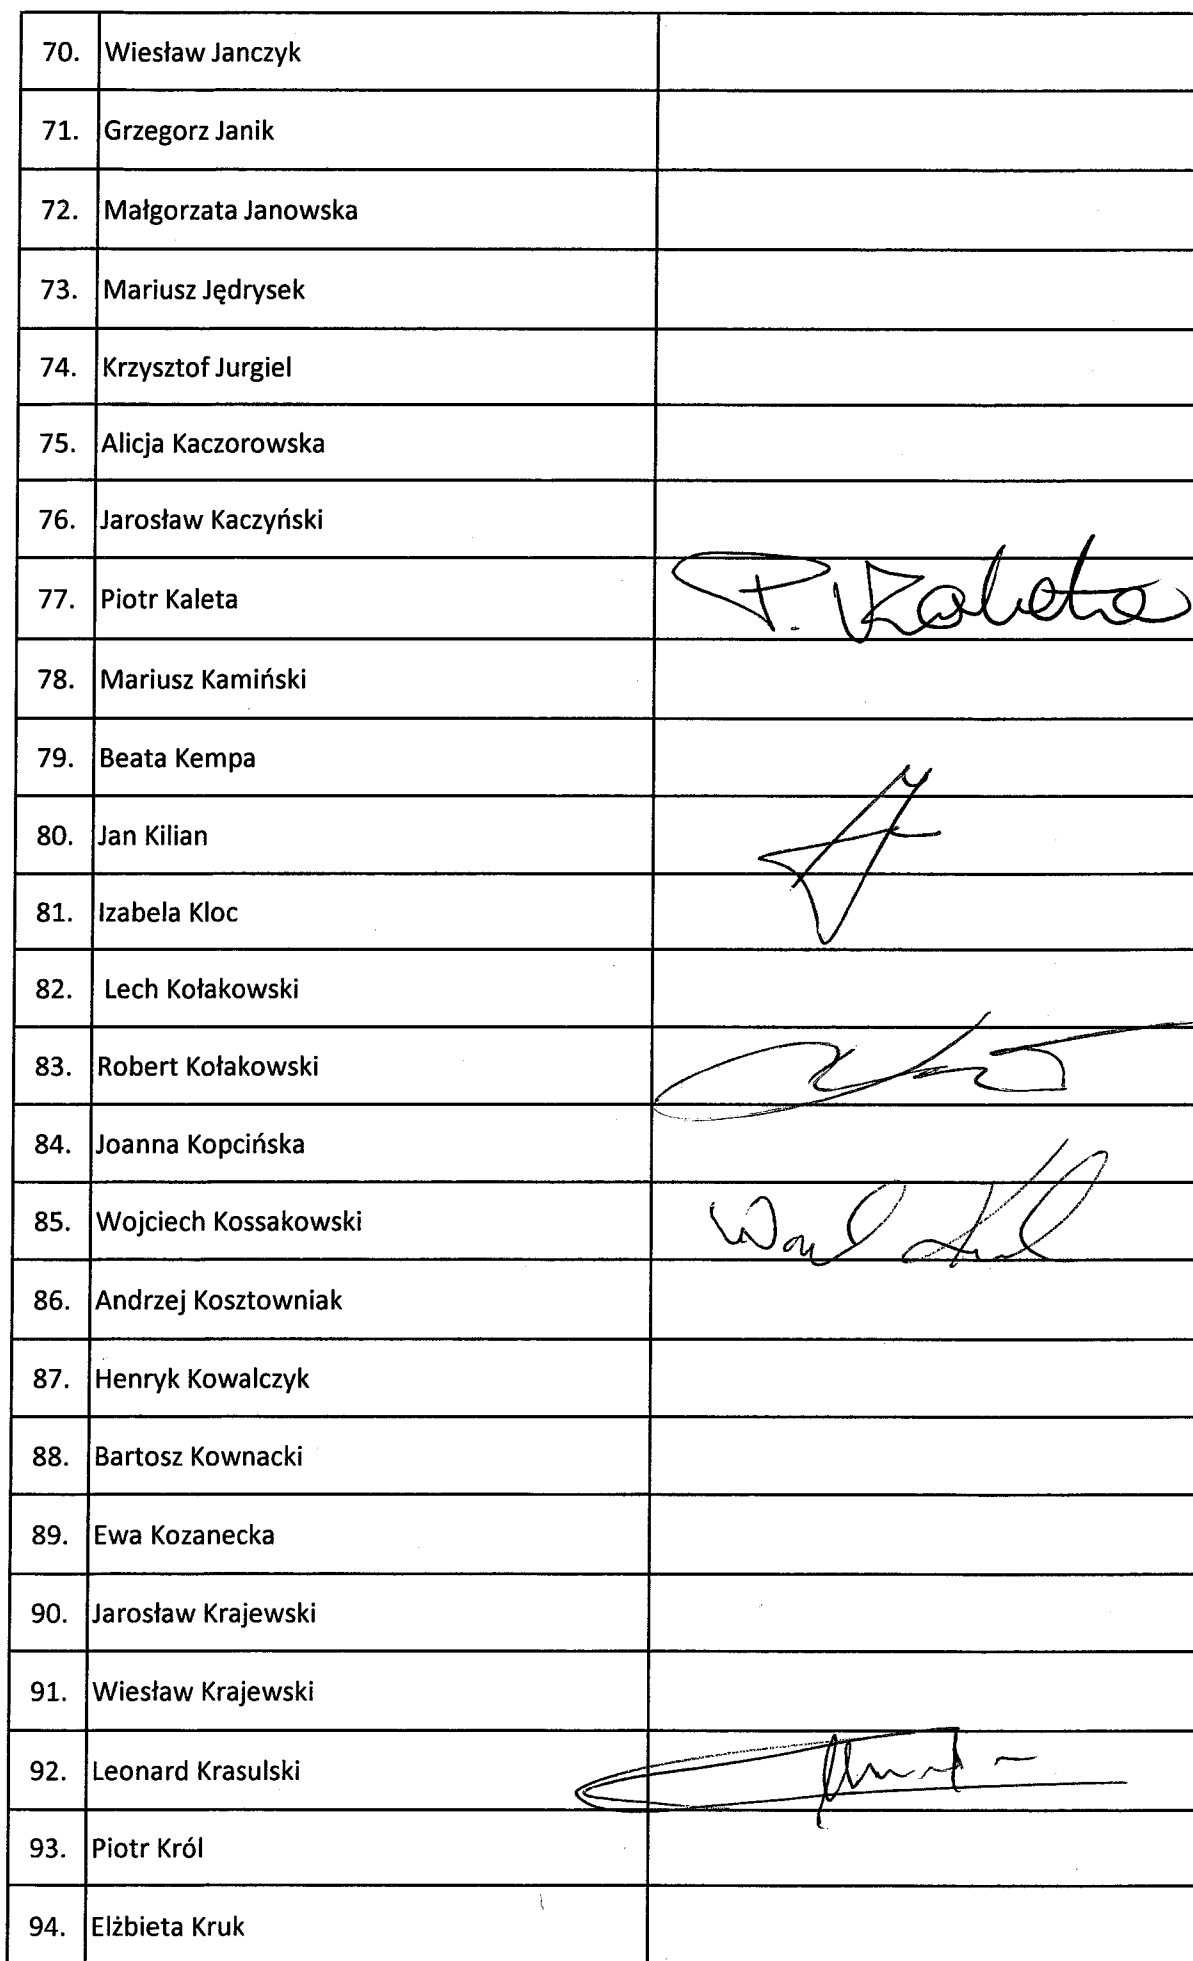 70. Wiesław Janczyk
71. Grzegorz Janik
72. Małgorzata Janowska
73. Mariusz Jędrysek
74. Krzysztof Jurgiel
75. Alicja Kaczorowska
76. Jarosław Kaczyński
77. Piotr Kaleta P. Kaleta
78. Mariusz Kamiński
79. Beata Kempa
80. Jan Kilian
81. Izabela Kloc
82. Lech Kołakowski
83. Robert Kołakowski
84. Joanna Kopcińska
85. Wojciech Kossakowski
86. Andrzej Kosztowniak
87. Henryk Kowalczyk
88. Bartosz Kownacki
89. Ewa Kozanecka
90. Jarosław Krajewski
91. Wiesław Krajewski
92. Leonard Krasulski
93. Piotr Król
94. Elżbieta Kruk